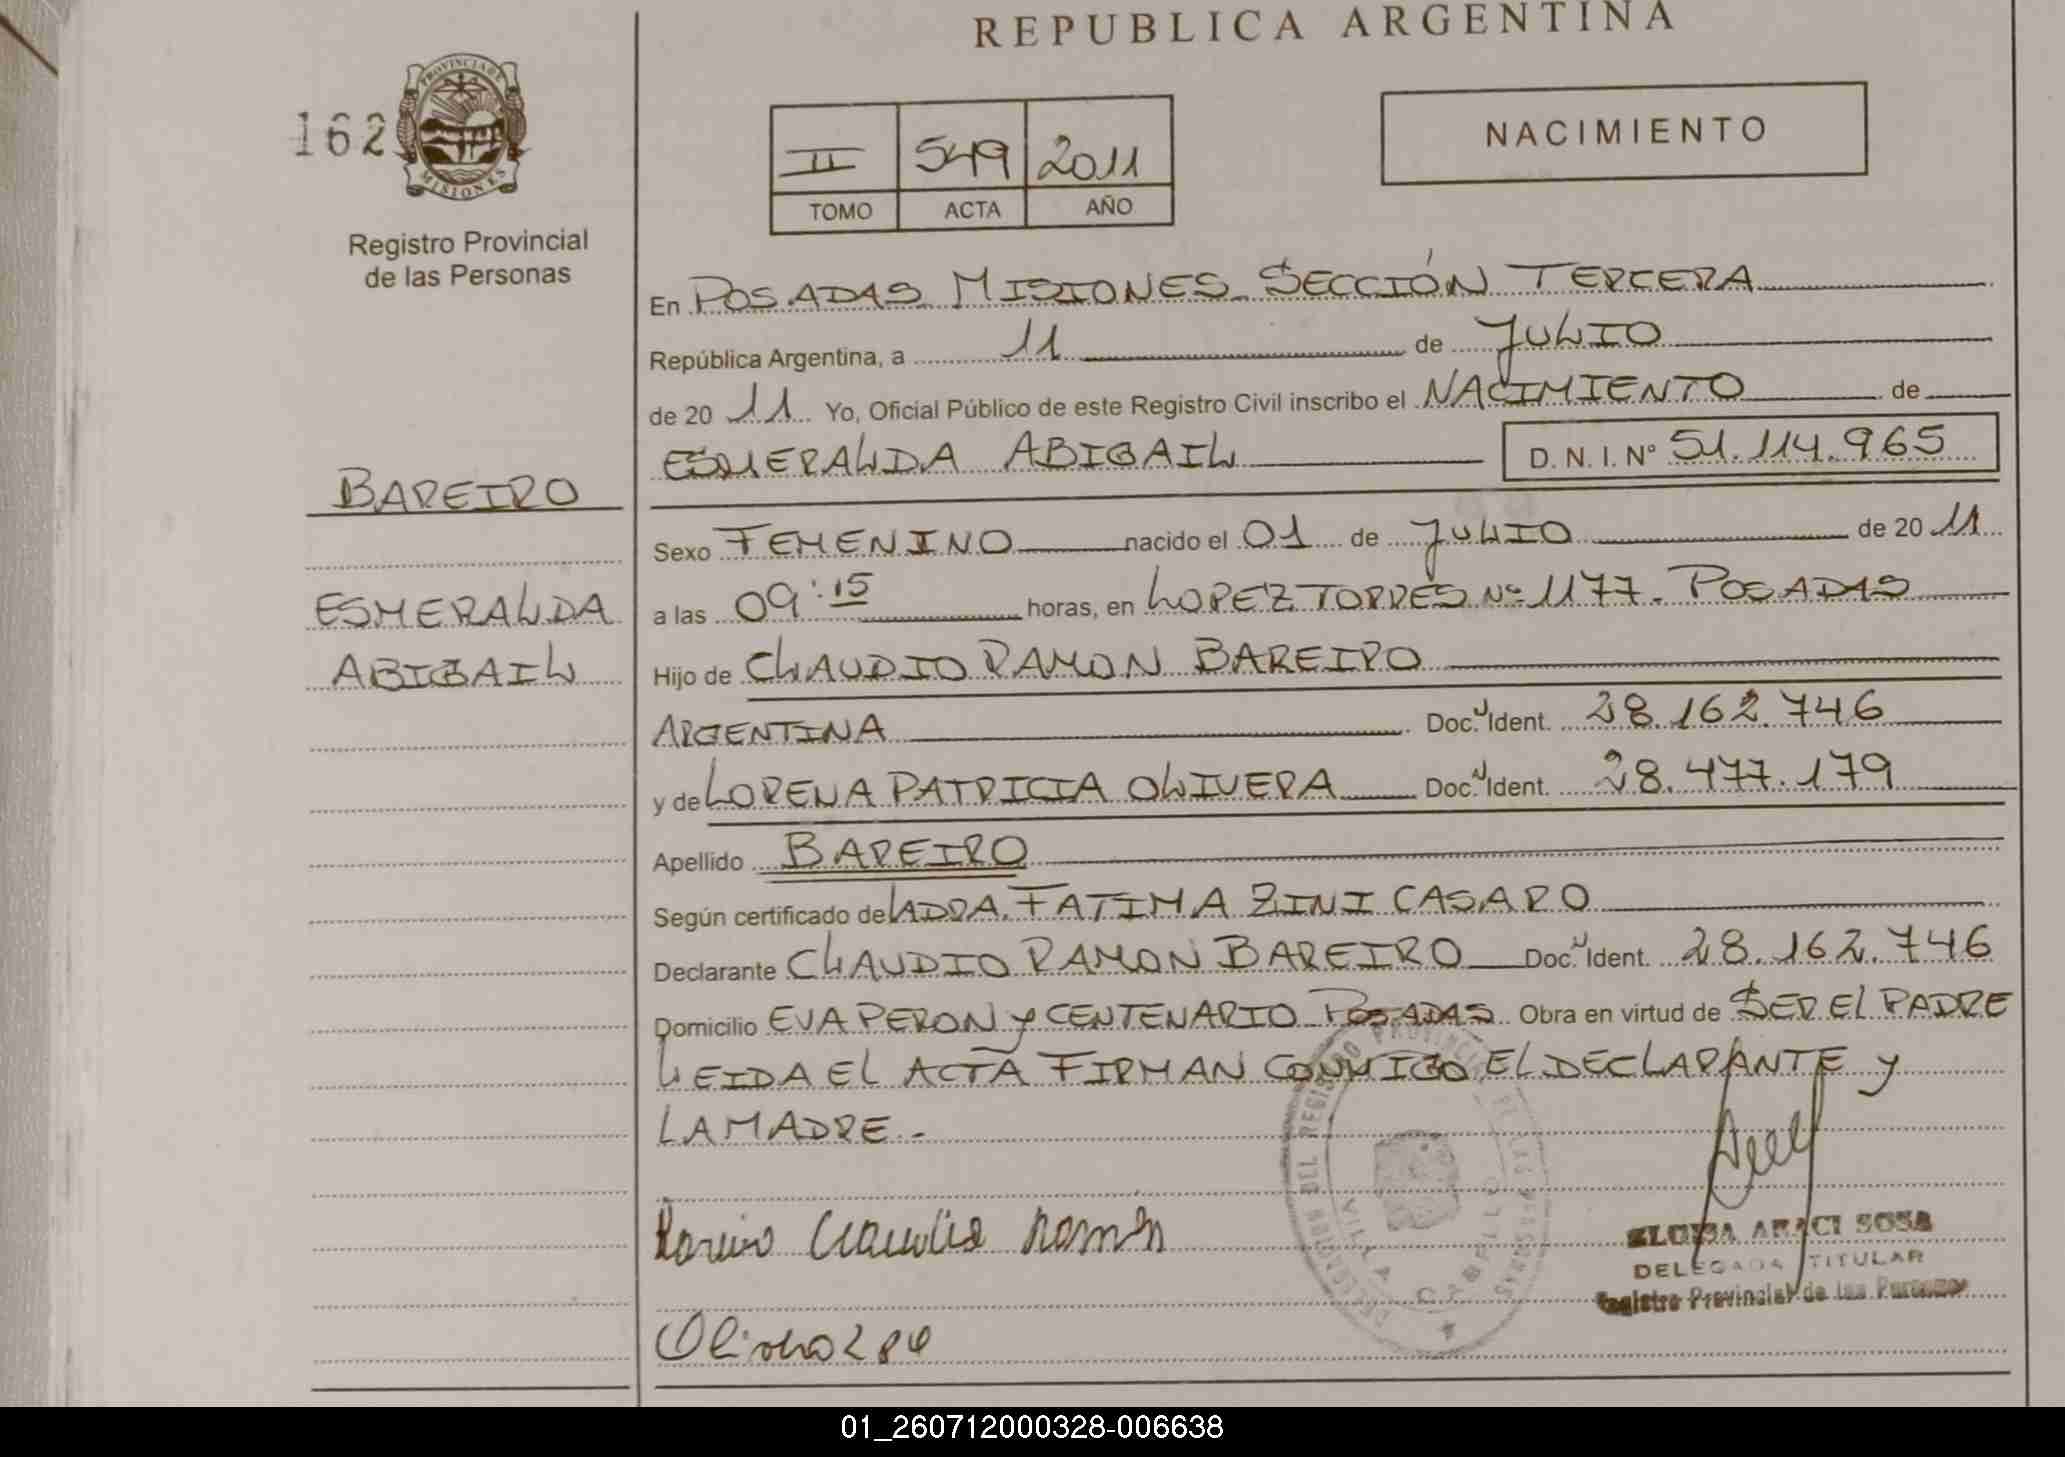 REPUBLICA ARGENTINA
162
PROVINCIA DE
MISIONES
Registro Provincial
de las Personas
II 549 2011
TOMO ACTA AÑO
NACIMIENTO
En POSADAS MISIONES SECCIÓN TERCERA
República Argentina, a 11 de JULIO
de 20 11 Yo, Oficial Público de este Registro Civil inscribo el NACIMIENTO de
ESMERALDA ABIGAIL D. N. I. Nº 51.114.965
BAREIRO
ESMERALDA
ABIGAIL
Sexo FEMENINO nacido el 01 de JULIO de 20 11
a las 09:15 horas, en LOPEZ TORRES Nº 1177. POSADAS
Hijo de CLAUDIO RAMON BAREIRO
ARGENTINA Doc. Ident. 28.162.746
y de LORENA PATRICIA OLIVERA Doc. Ident. 28.477.179
Apellido BAREIRO
Según certificado de LA DRA. FATIMA ZINI CASARO
Declarante CLAUDIO RAMON BAREIRO Doc. Ident. 28.162.746
Domicilio EVA PERON y CENTENARIO POSADAS Obra en virtud de SER EL PADRE
LEIDA EL ACTA FIRMAN CONMIGO EL DECLARANTE y
LA MADRE.-
DELEGACION DEL REGISTRO PROVINCIAL DE LAS PERSONAS
VILLA CABELLO
Bareiro Claudio Ramon
ELOISA ARACI SOSA
DELEGADA TITULAR
Registro Provincial de las Personas
01_260712000328-006638